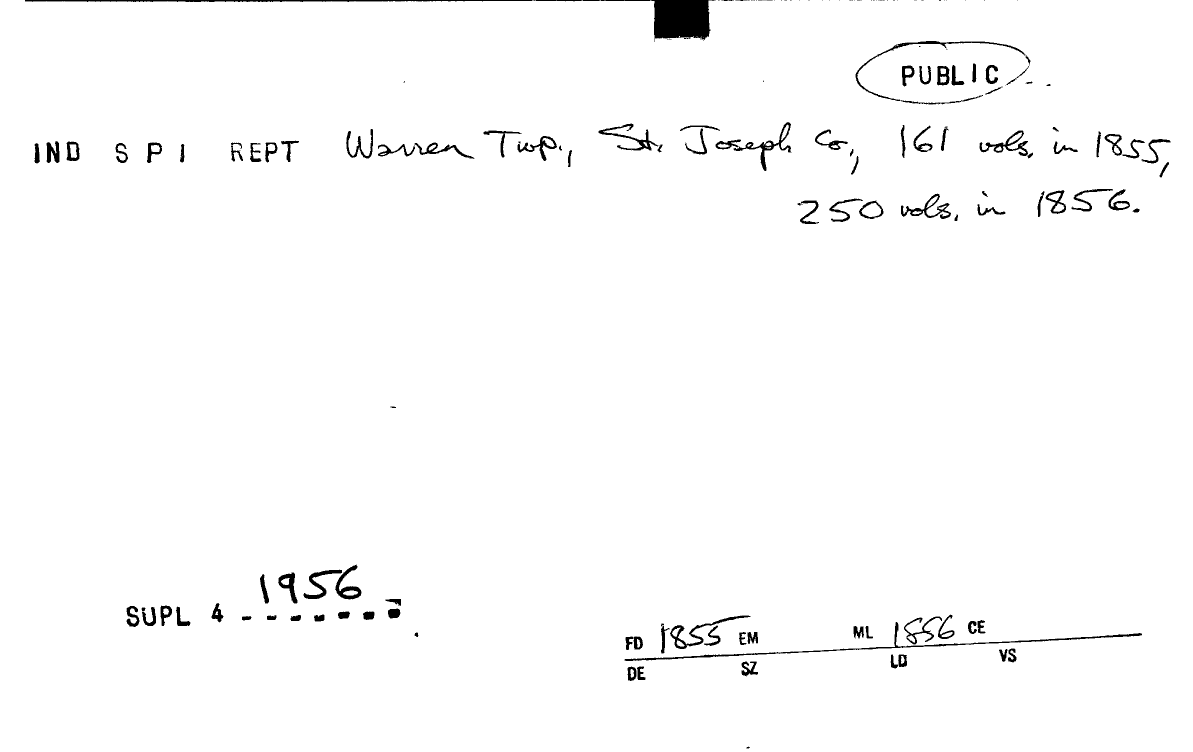 PUBLIC
IND S P I REPT Warren Twp., St. Joseph Co., 161 vols. in 1855,
250 vols. in 1856.
SUPL 4 1956
FD 1855 EM ML 1856 CE
DE SZ LD VS